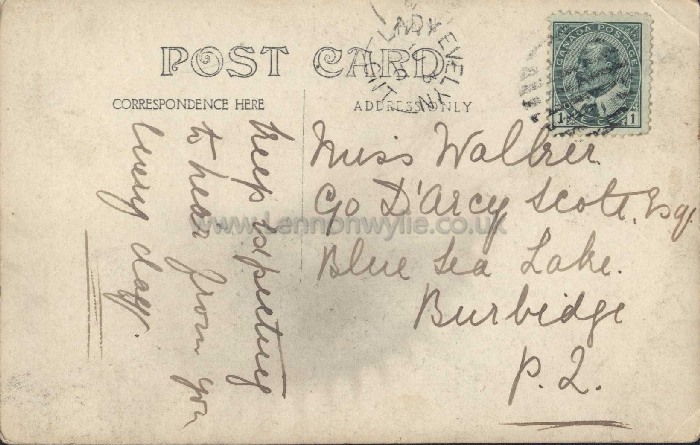 POST CARD
CORRESPONDENCE HERE
ADDRESS ONLY
LADY EVELYN
CANADA POSTAGE
1 1
Keep expecting
to hear from you
every day.
Miss Walker
C/o D'Arcy Scott, Esq.
Blue Sea Lake.
Burbidge
P.Q.
www.Lennonwylie.co.uk